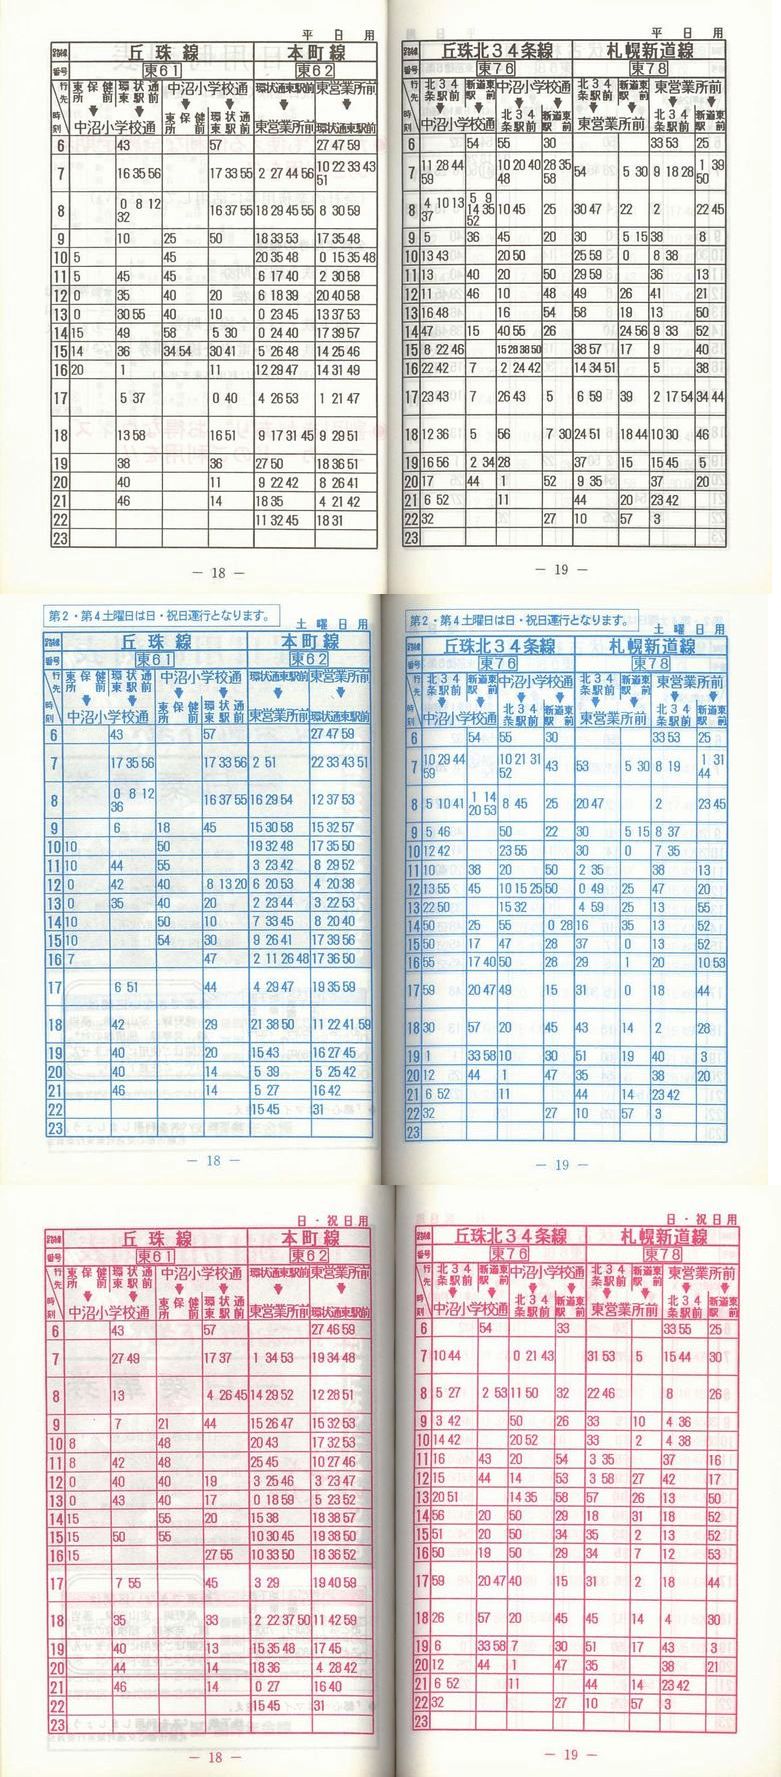 平日用
路線 丘珠線 本町線
番号 東61 東62
行先 時刻 東保健所前 環状通東駅前 中沼小学校通 環状通東駅前 東営業所前
中沼小学校通 東保健所前 環状通東駅前 東営業所前 環状通東駅前
6 43 57 27 47 59
7 16 35 56 17 33 55 2 27 44 56 10 22 33 43 51
8 0 8 12 32 16 37 55 18 29 45 55 8 30 59
9 10 25 50 18 33 53 17 35 48
10 5 45 20 35 48 0 15 35 48
11 5 45 45 6 17 40 2 30 58
12 0 35 40 20 6 18 39 20 40 58
13 0 30 55 40 10 0 23 45 13 37 53
14 15 49 58 5 30 0 24 40 17 39 57
15 14 36 34 54 30 41 5 26 48 14 25 46
16 20 1 11 12 29 47 14 31 49
17 5 37 0 40 4 26 53 1 21 47
18 13 58 16 51 9 17 31 45 9 29 51
19 38 36 27 50 18 36 51
20 40 11 9 22 42 8 26 41
21 46 14 18 35 4 21 42
22 11 32 45 18 31
23
― 18 ―
平日用
路線 丘珠北34条線 札幌新道線
番号 東76 東78
行先 時刻 北34条駅前 新道東駅前 中沼小学校通 北34条駅前 新道東駅前 東営業所前
中沼小学校通 北34条駅前 新道東駅前 東営業所前 北34条駅前 新道東駅前
6 54 55 30 33 53 25
7 11 28 44 59 10 20 40 48 28 35 58 54 5 30 9 18 28 1 39 50
8 4 10 13 37 5 9 14 35 52 10 45 25 30 47 22 2 22 45
9 5 36 45 20 30 5 15 38 8
10 13 43 20 50 25 59 0 8 38
11 13 40 20 50 29 59 36 13
12 11 46 10 48 49 26 41 21
13 16 48 16 54 58 19 13 50
14 47 15 40 55 26 24 56 9 33 52
15 8 22 46 15 28 38 50 38 57 17 9 40
16 22 42 7 2 24 42 14 34 51 5 38
17 23 43 7 26 43 5 6 59 39 2 17 54 34 44
18 12 36 5 56 7 30 24 51 18 44 10 30 46
19 16 56 2 34 28 37 15 15 45 5
20 17 44 1 52 9 35 37 20
21 6 52 11 44 20 23 42
22 32 27 10 57 3
23
― 19 ―
第2・第4土曜日は日・祝日運行となります。
土曜日用
路線 丘珠線 本町線
番号 東61 東62
行先 時刻 東保健所前 環状通東駅前 中沼小学校通 環状通東駅前 東営業所前
中沼小学校通 東保健所前 環状通東駅前 東営業所前 環状通東駅前
6 43 57 27 47 59
7 17 35 56 17 33 56 2 51 22 33 43 51
8 0 8 12 36 16 37 55 16 29 54 12 37 53
9 6 18 45 15 30 58 15 32 57
10 10 50 19 32 48 17 35 50
11 10 44 55 3 23 42 8 29 52
12 0 42 40 8 13 20 6 20 53 4 20 38
13 0 35 40 20 2 23 44 3 22 53
14 10 50 10 7 33 45 8 20 40
15 10 54 30 9 26 41 17 39 56
16 7 47 2 11 26 48 17 36 50
17 6 51 44 4 29 47 19 35 59
18 42 29 21 38 50 11 22 41 59
19 40 20 15 43 16 27 45
20 40 14 5 39 5 25 42
21 46 14 5 27 16 42
22 15 45 31
23
― 18 ―
第2・第4土曜日は日・祝日運行となります。
土曜日用
路線 丘珠北34条線 札幌新道線
番号 東76 東78
行先 時刻 北34条駅前 新道東駅前 中沼小学校通 北34条駅前 新道東駅前 東営業所前
中沼小学校通 北34条駅前 新道東駅前 東営業所前 北34条駅前 新道東駅前
6 54 55 30 33 53 25
7 10 29 44 59 10 21 31 52 43 53 5 30 8 19 1 31 44
8 5 10 41 1 14 20 53 8 45 25 20 47 2 23 45
9 5 46 50 22 30 5 15 8 37
10 12 42 23 55 30 0 7 35
11 10 38 20 50 2 35 38 13
12 13 55 45 10 15 25 50 0 49 25 47 20
13 22 50 15 32 4 59 25 13 55
14 50 25 55 0 28 16 35 13 52
15 50 17 47 28 37 0 13 52
16 55 17 40 50 28 29 1 20 10 53
17 59 20 47 49 15 31 0 18 44
18 30 57 20 45 43 14 2 28
19 1 33 58 10 30 51 19 40 3
20 12 44 1 47 35 38 20
21 6 52 11 44 14 23 42
22 32 27 10 57 3
23
― 19 ―
日・祝日用
路線 丘珠線 本町線
番号 東61 東62
行先 時刻 東保健所前 環状通東駅前 中沼小学校通 環状通東駅前 東営業所前
中沼小学校通 東保健所前 環状通東駅前 東営業所前 環状通東駅前
6 43 57 27 46 59
7 27 49 17 37 1 34 53 19 34 48
8 13 4 26 45 14 29 52 12 28 51
9 7 21 44 15 26 47 15 32 53
10 8 48 20 43 17 32 53
11 8 42 48 25 45 10 27 46
12 0 40 40 19 3 25 46 3 23 47
13 0 43 40 17 0 18 59 5 23 52
14 15 55 20 15 38 18 38 57
15 15 50 55 10 30 45 19 38 50
16 15 27 55 10 33 50 18 36 52
17 7 55 45 3 29 19 40 59
18 35 33 2 22 37 50 11 42 59
19 40 13 15 35 48 17 45
20 44 14 18 36 4 28 42
21 46 14 0 27 16 40
22 15 45 31
23
― 18 ―
日・祝日用
路線 丘珠北34条線 札幌新道線
番号 東76 東78
行先 時刻 北34条駅前 新道東駅前 中沼小学校通 北34条駅前 新道東駅前 東営業所前
中沼小学校通 北34条駅前 新道東駅前 東営業所前 北34条駅前 新道東駅前
6 54 33 33 55 25
7 10 44 0 21 43 31 53 5 15 44 30
8 5 27 2 53 11 50 32 22 46 8 26
9 3 42 50 26 33 10 4 36
10 14 42 20 52 33 2 4 38
11 16 43 20 54 3 35 37 16
12 15 44 14 53 3 58 27 42 17
13 20 51 14 35 58 57 26 13 50
14 56 20 50 29 18 31 18 52
15 51 20 50 34 35 2 13 52
16 50 19 50 29 34 7 12 53
17 59 20 47 40 15 31 2 18 44
18 26 57 20 45 45 14 4 30
19 6 33 58 7 30 51 17 43 3
20 12 44 1 47 35 38 21
21 6 52 11 44 14 23 42
22 32 27 10 57 3
23
― 19 ―